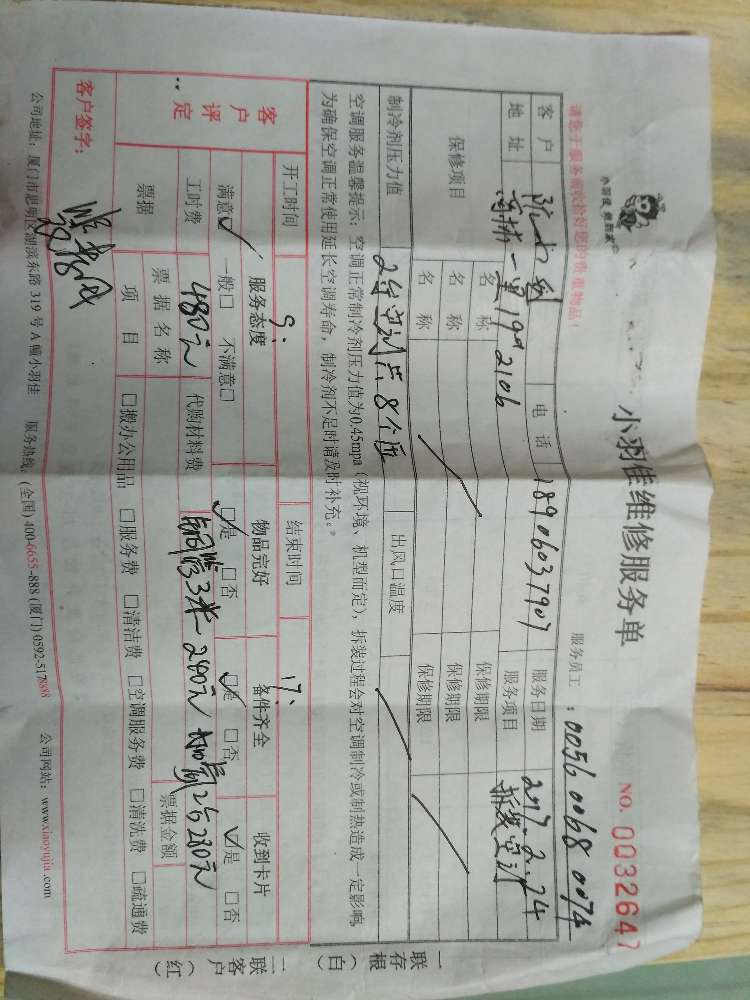 小羽佳维修服务单
NO. 0032647
小羽佳 焕新家
请您于服务前收拾好您的贵重物品!
服务员工:0056 0068 0074
客户 电话 18906037907 服务日期 2017.2.24
地址 一里19# 2106 服务项目 拆装空调
保修项目 名称 保修期限
名称 保修期限
名称 保修期限
制冷剂压力值 2台空调 8个压 出风口温度
空调服务温馨提示:空调正常制冷剂压力值为0.45mpa(视环境、机型而定),拆装过程会对空调制冷或制热造成一定影响
为确保空调正常使用延长空调寿命,制冷剂不足时请及时补充。
开工时间 9: 结束时间 17:
客户评定 服务态度 物品完好 备件齐全 收到卡片
满意☑ 一般□ 不满意□ ☑是 □否 ☑是 □否 ☑是 □否
工时费 480元 代购材料费 铜管3米 240元 加氟2台 230元
票据 票据名称 票据金额
项目 □搬办公用品 □服务费 □清洁费 □空调服务费 □清洗费 □疏通费
客户签字:
公司地址:厦门市思明区湖滨东路 319 号 A 幢小羽佳 服务热线:(全国) 400-6655-888 (厦门) 0592-5178888 公司网站:www.xiaoyujia.com
一联存根(白)
二联客户(红)